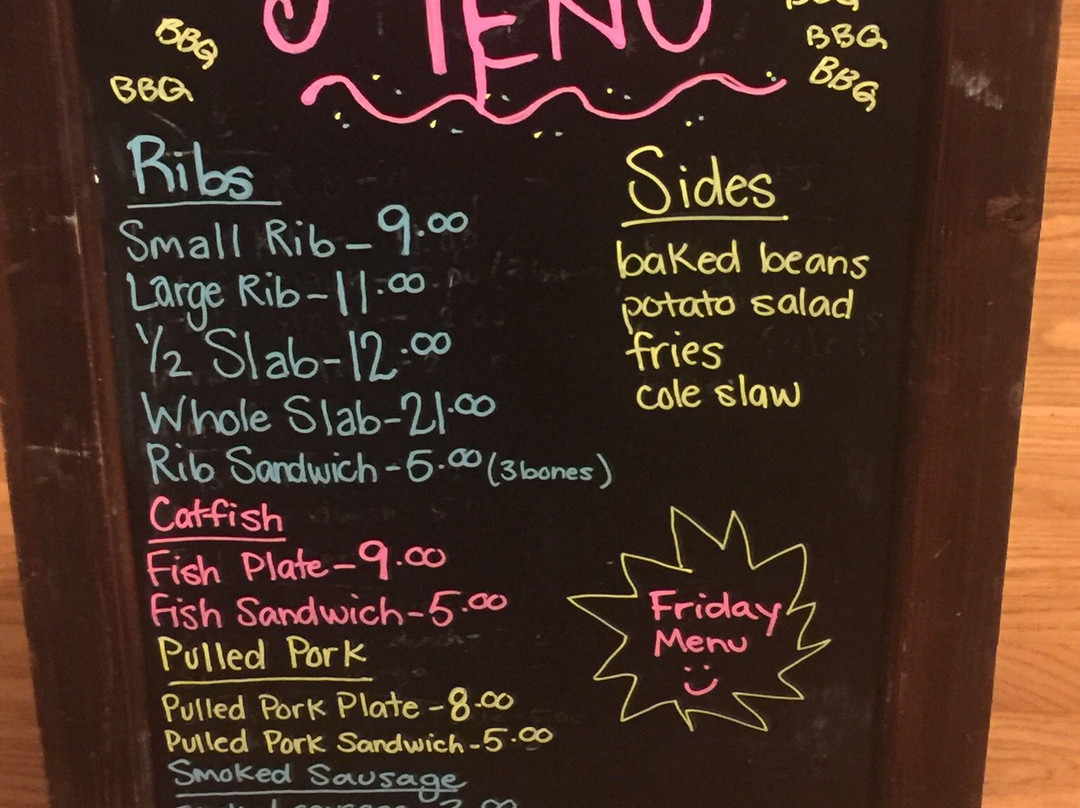 MENU
BBQ
BBQ
BBQ
BBQ
BBQ
Ribs
Small Rib - 9.00
Large Rib - 11.00
1/2 Slab - 12.00
Whole Slab - 21.00
Rib Sandwich - 5.00 (3 bones)
Catfish
Fish Plate - 9.00
Fish Sandwich - 5.00
Pulled Pork
Pulled Pork Plate - 8.00
Pulled Pork Sandwich - 5.00
Smoked Sausage
Sides
baked beans
potato salad
fries
cole slaw
Friday
Menu